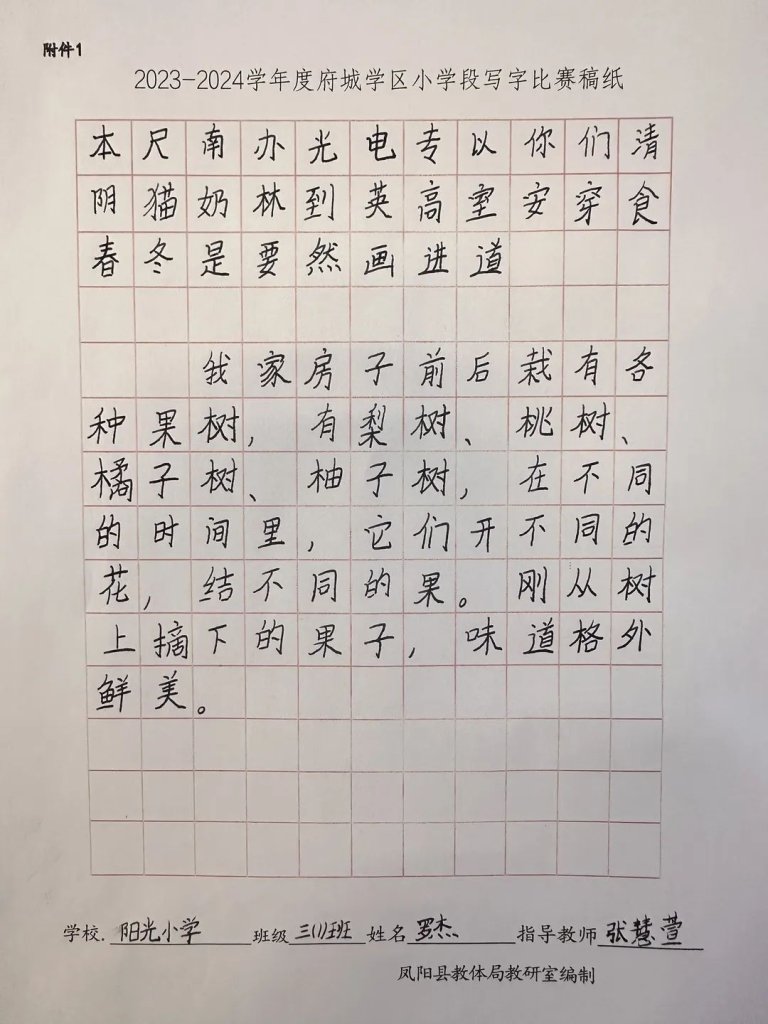 附件1
2023-2024学年度府城学区小学段写字比赛稿纸
本尺南办光电专以你们清
阴猫奶林到英高室安穿食
春冬是要然画进道
我家房子前后栽有各
种果树，有梨树、桃树、
橘子树、柚子树，在不同
的时间里，它们开不同的
花，结不同的果。刚从树
上摘下的果子，味道格外
鲜美。
学校.阳光小学 班级三(1)班 姓名罗杰 指导教师张慧萱
凤阳县教体局教研室编制